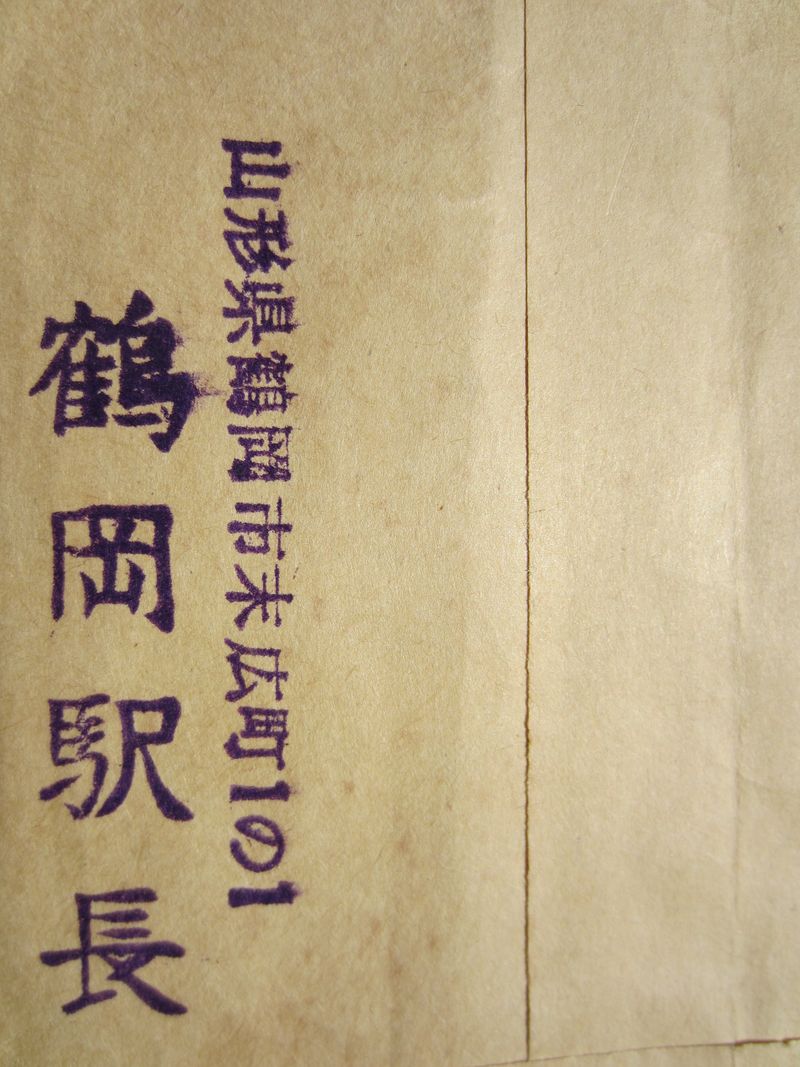 山形県鶴岡市末広町1の1
鶴岡駅長